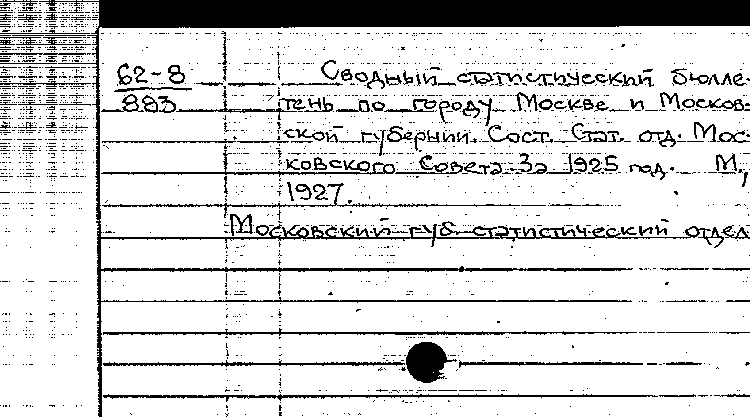 62-8
883
Сводный статистический бюлле-
тень по городу Москве и Москов-
ской губернии. Сост. Стат. отд. Мос-
ковского Совета. За 1925 год. М.,
1927.
Московский губ. статистический отдел